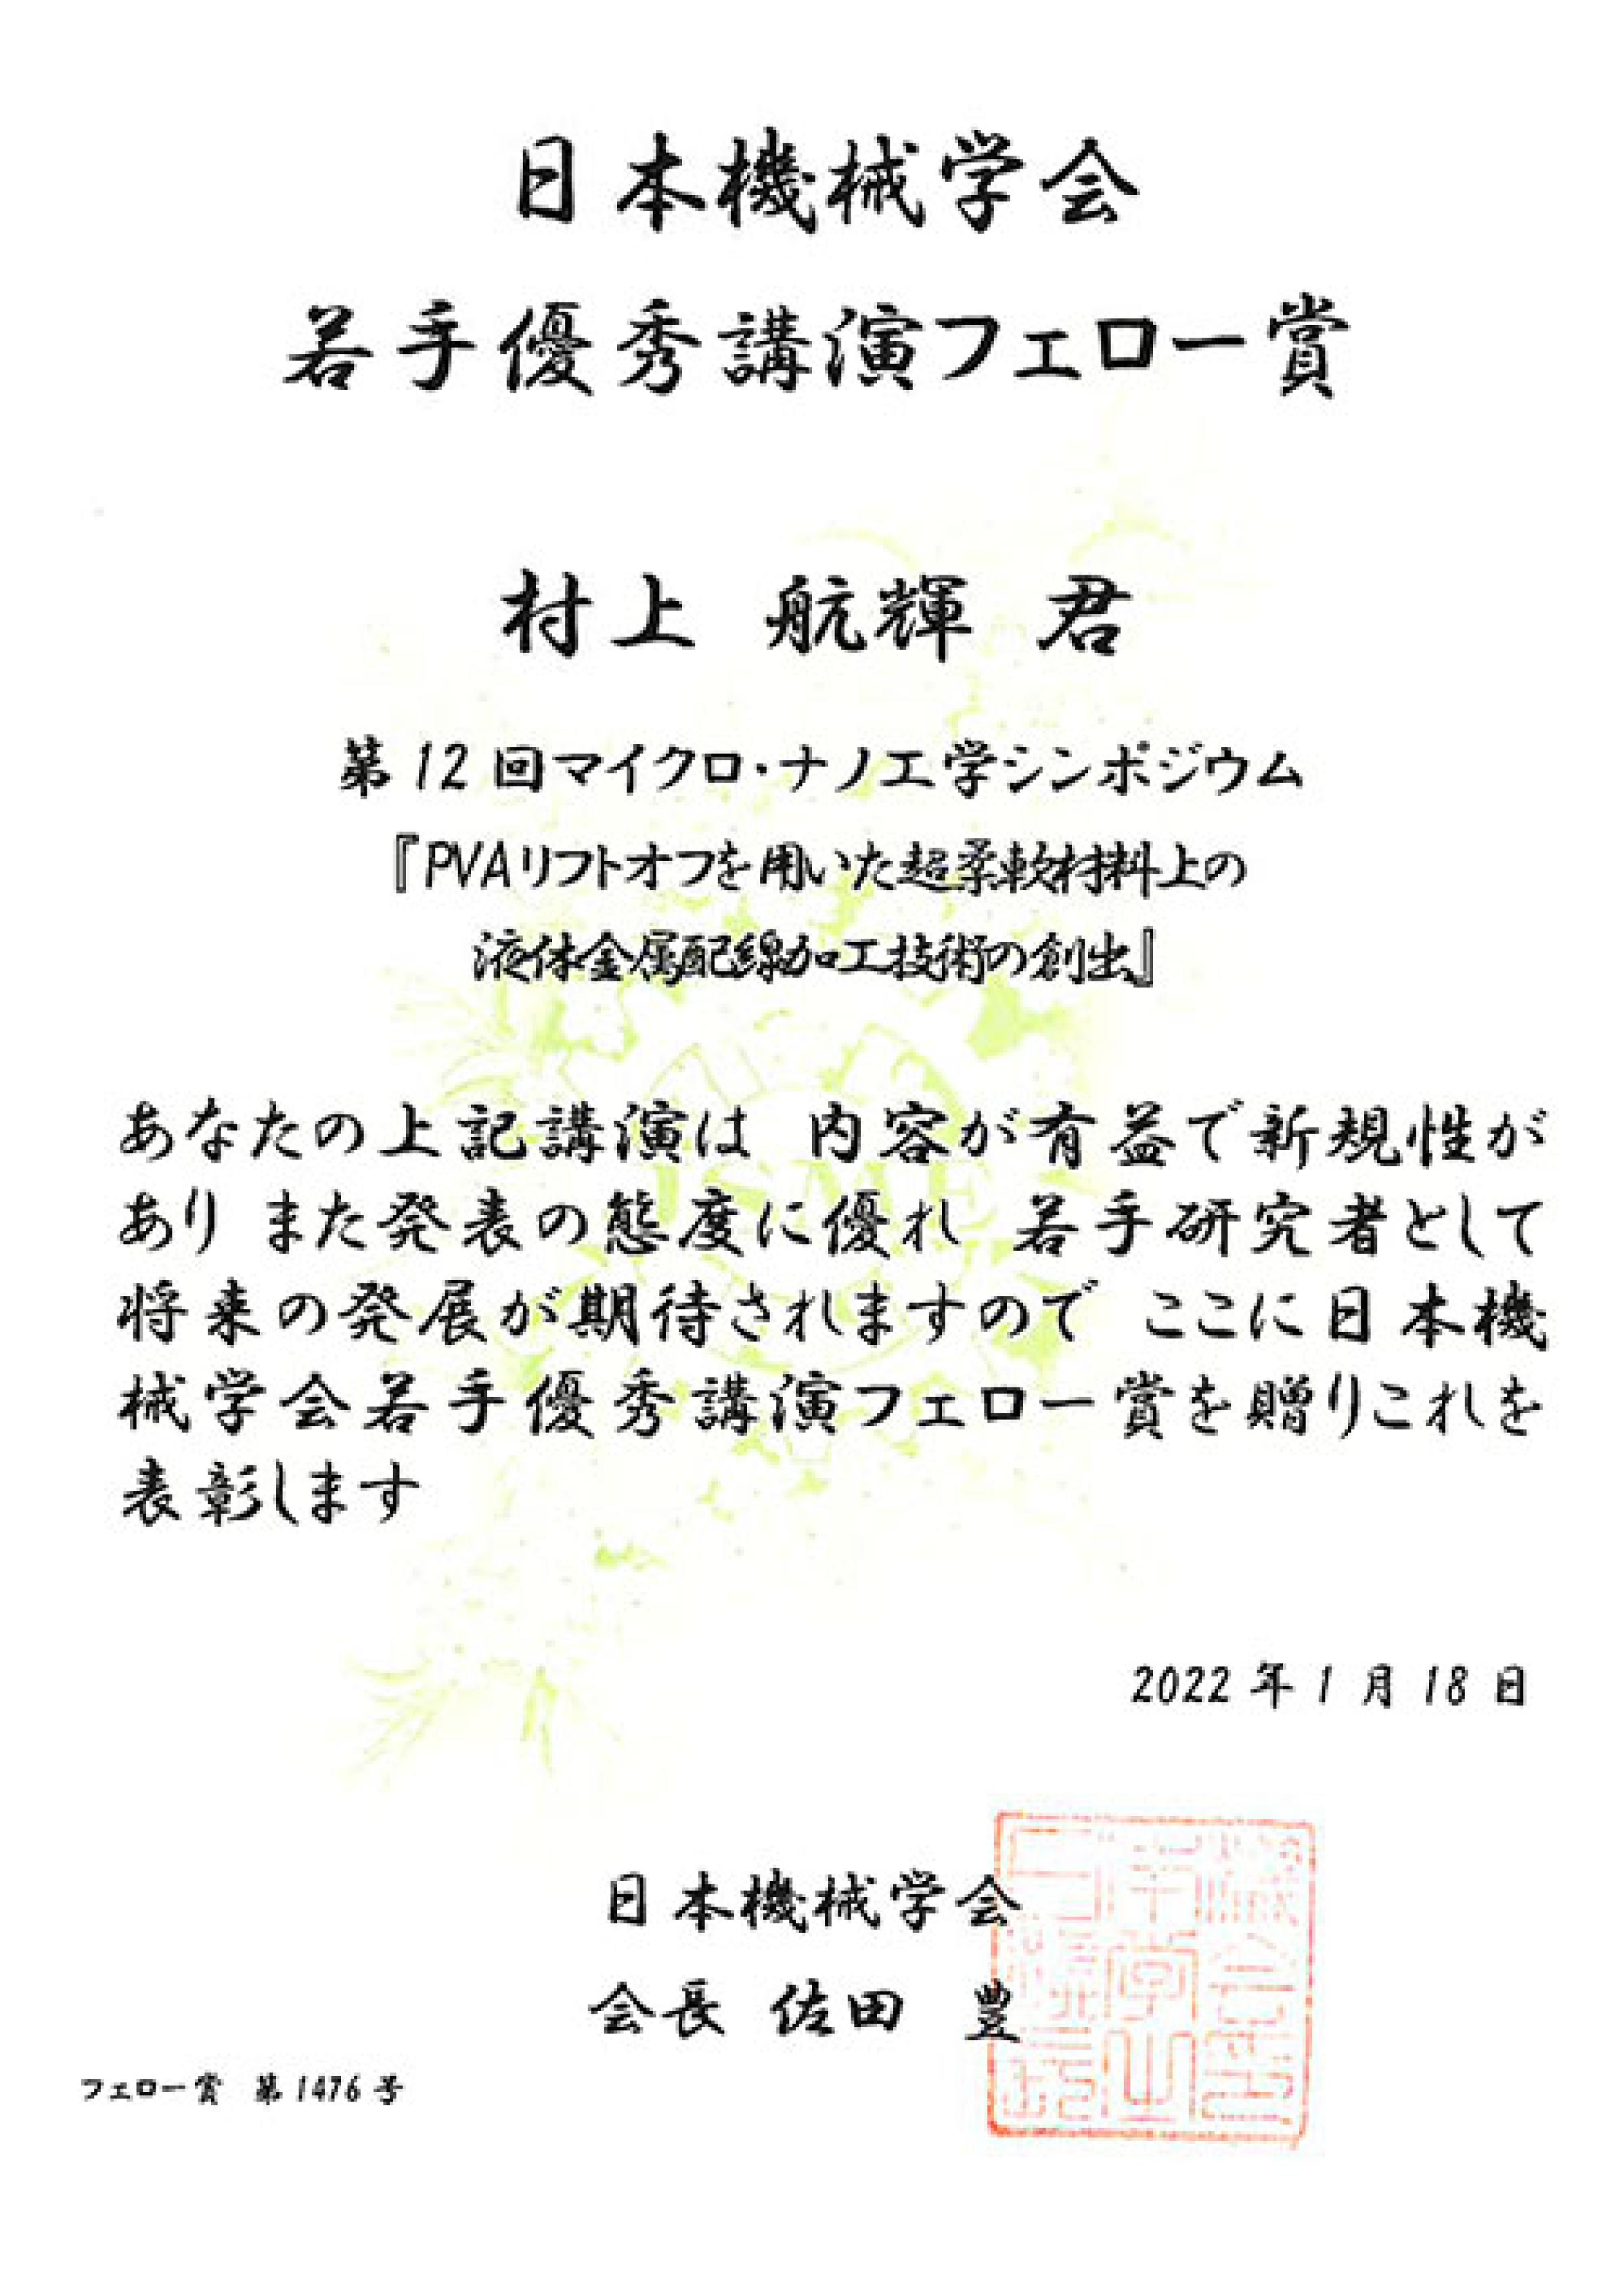 日本機械学会
若手優秀講演フェロー賞
村上 航輝 君
第12回マイクロ・ナノ工学シンポジウム
『PVAリフトオフを用いた超柔軟材料上の
液体金属配線加工技術の創出』
あなたの上記講演は 内容が有益で新規性が
あり また発表の態度に優れ 若手研究者として
将来の発展が期待されますので ここに日本機
械学会若手優秀講演フェロー賞を贈りこれを
表彰します
2022年1月18日
日本機械学会
会長 佐田 豊
フェロー賞 第1476号
JSME